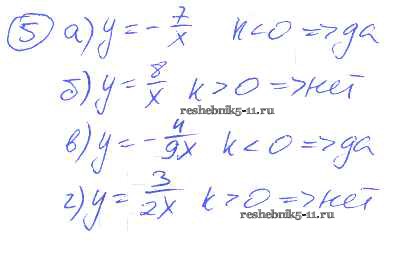 5) а) y = -7/x  k < 0 => да
б) y = 8/x  k > 0 => нет
reshebnik5-11.ru
в) y = -4/9x  k < 0 => да
г) y = 3/2x  k > 0 => нет
reshebnik5-11.ru